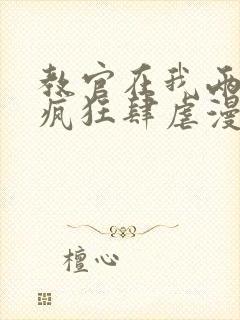 教官在我兩
瘋狂肆虐漫
檀心